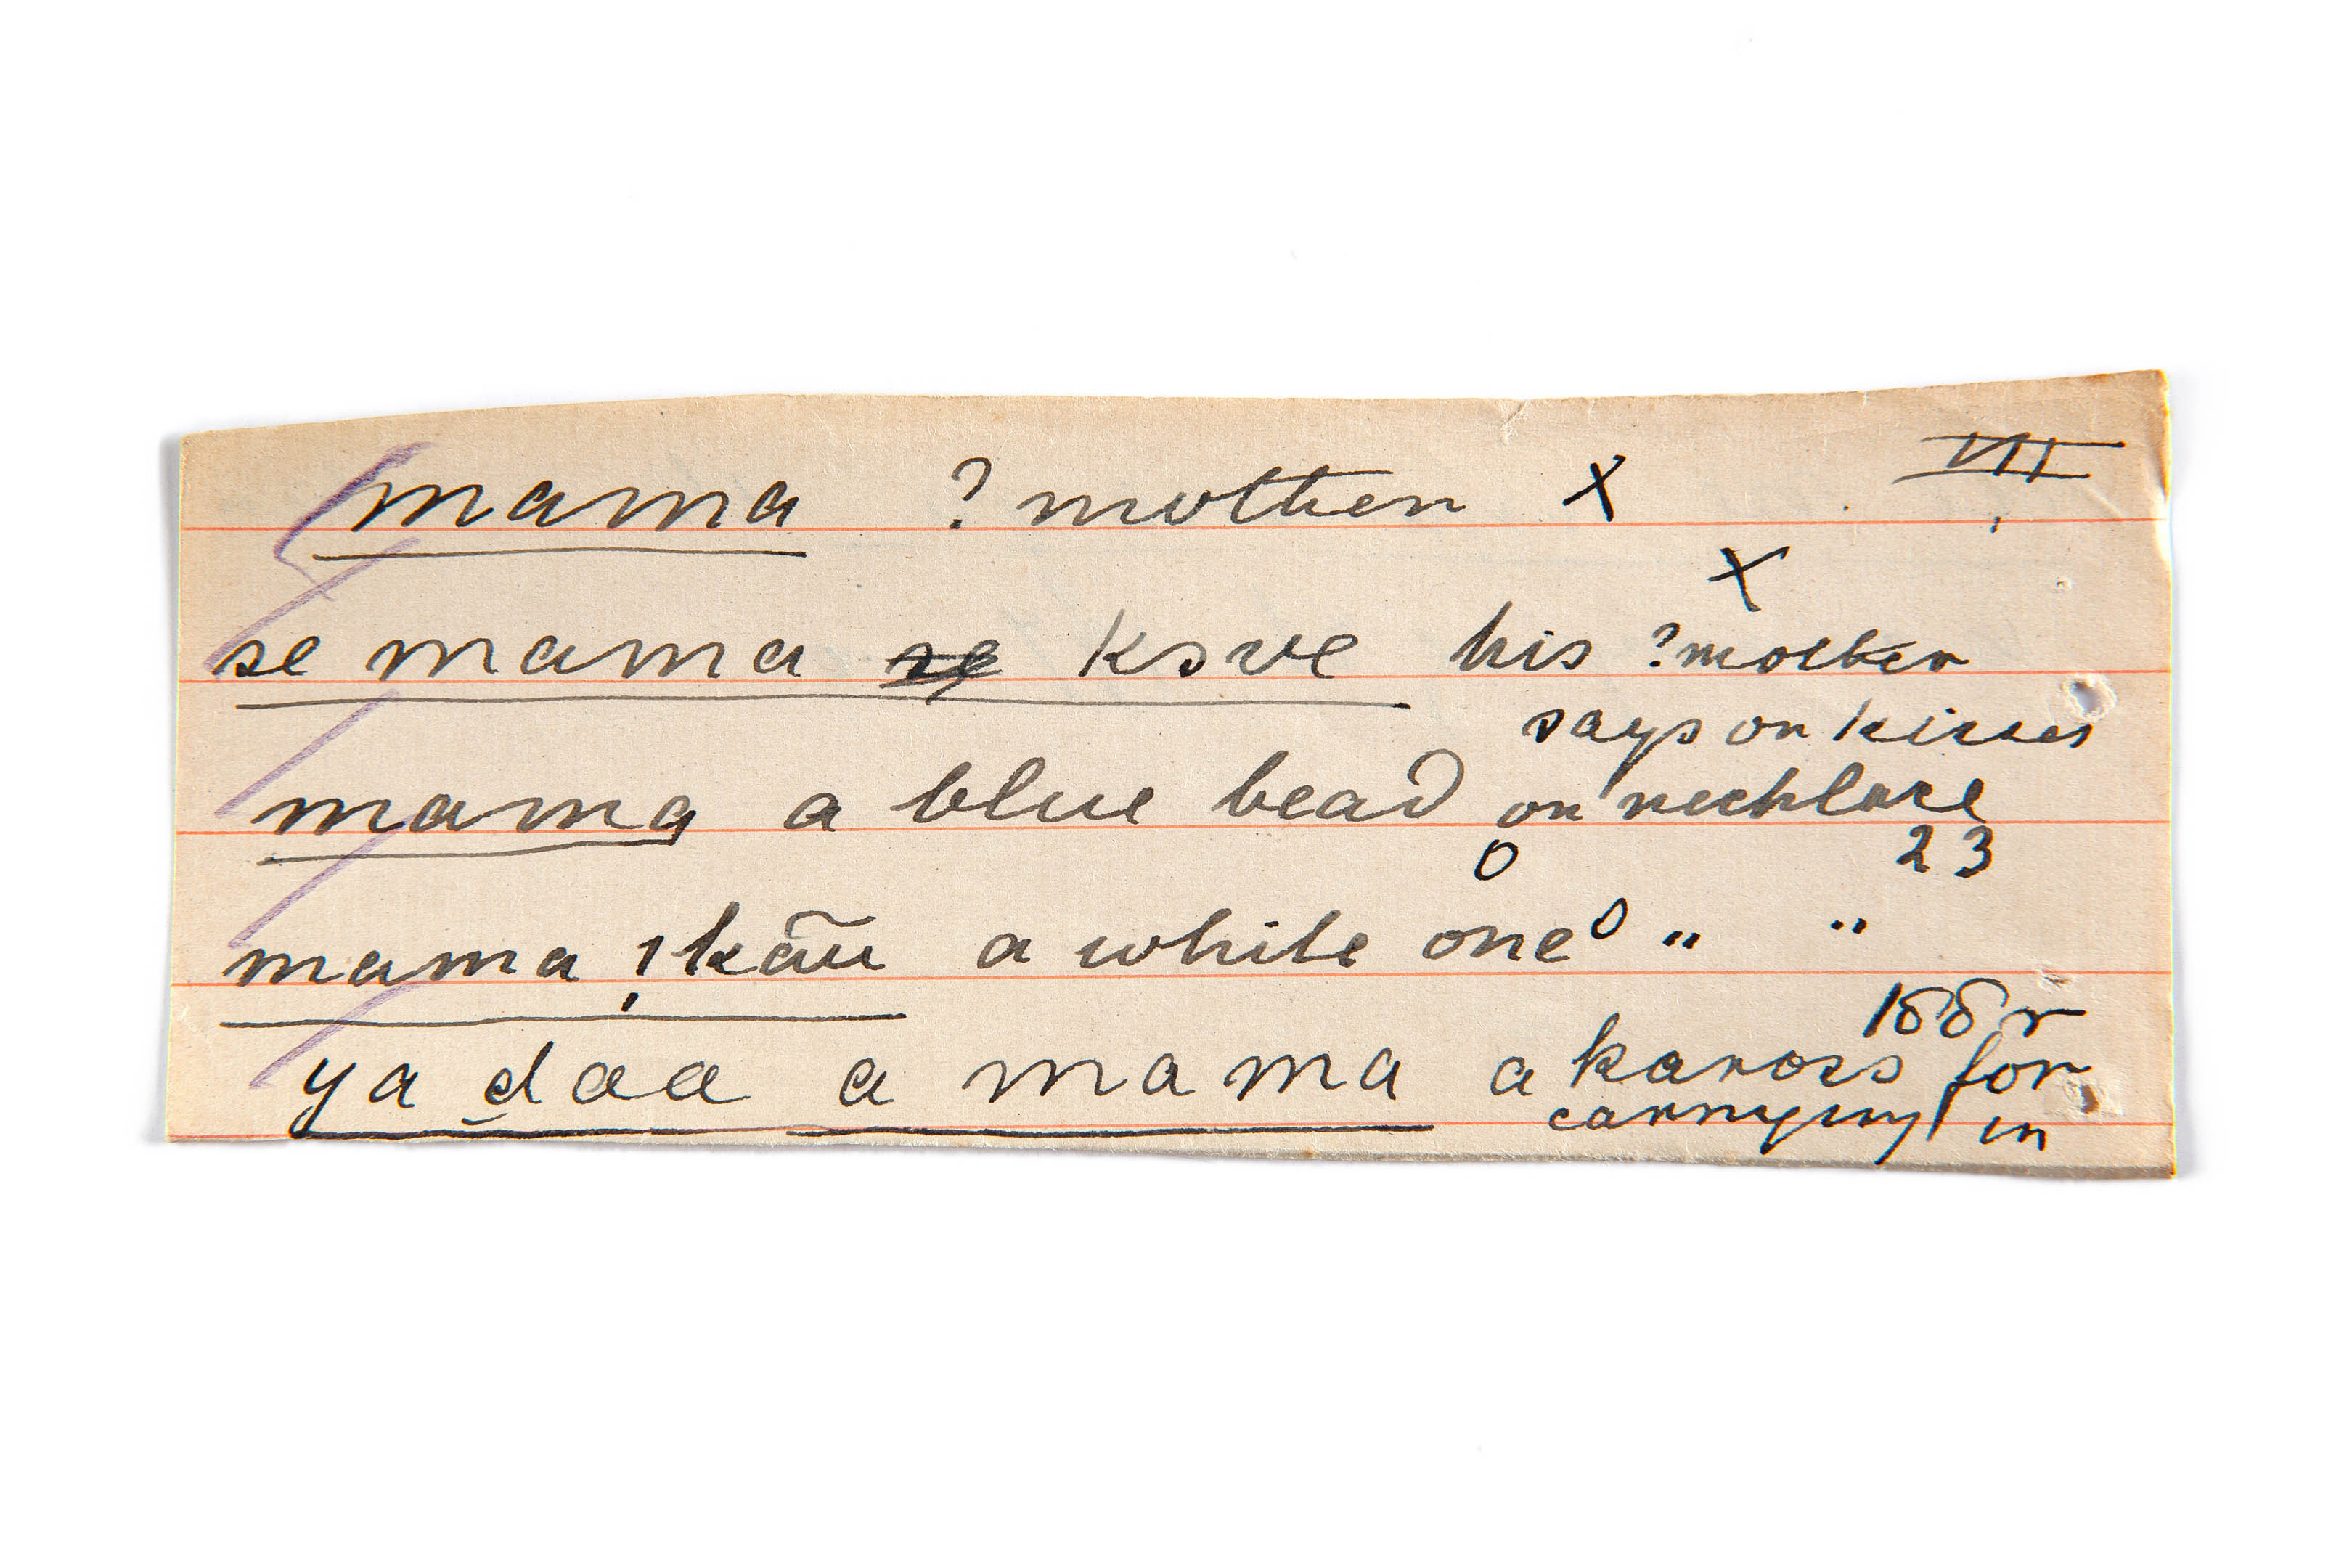 mama ? mother X VII
X
se mama se ksve his ? mother
says or kisses
mama a blue bead on necklace
O 23
mama !kãũ a white one O " "
188 r
ya daa a mama a kaross for
carrying in